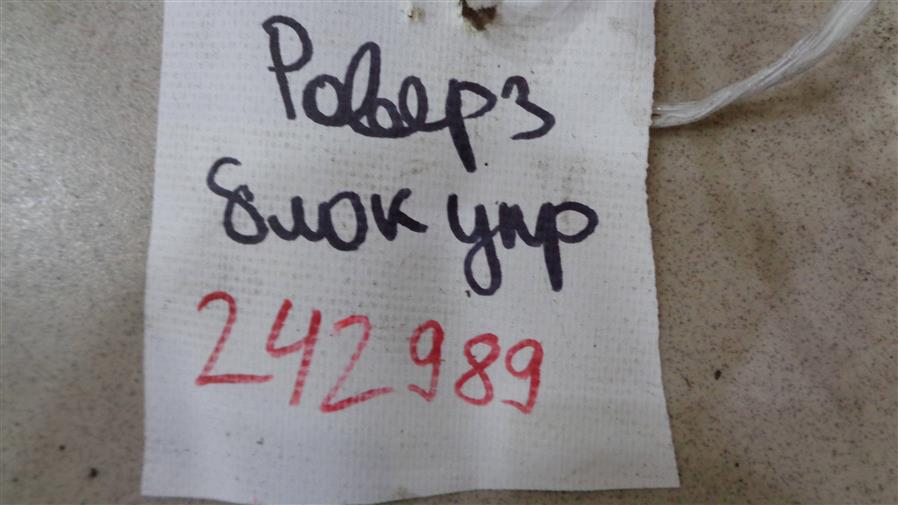 Роверз
блок упр
242989